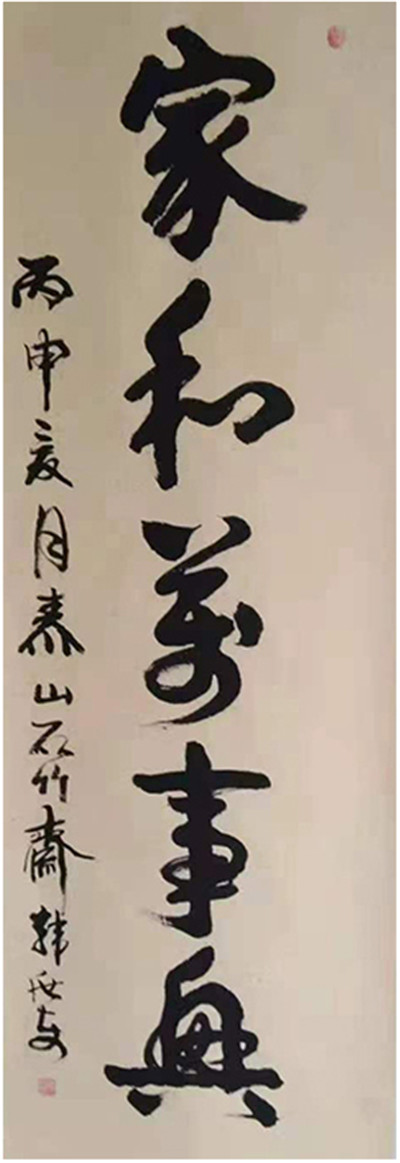 家和萬事興
丙申夏月泰山石竹齋韓